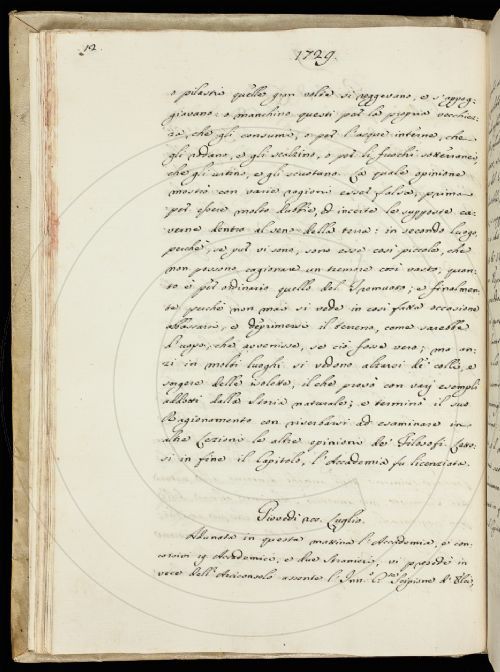 12.
1729.
o pilastri quelle gran volte si reggevano, e s'appog-
giavano: o manchino questi per la propria vecchiez-
za, che gli consumi, o per l'acque interne, che
gli rodano, e gli scalzino, o per li fuochi sotterranei,
che gli urtino, e gli scuotano. La quale opinione
mostrò con varie ragioni esser falsa; prima
per essere molto dubbie, ed incerte le supposte ca-
verne dentro al seno della terra: in secondo luogo,
perchè, se pur vi sono, sono esse così piccole, che
non possono cagionare un tremore così vasto, quan-
to è per ordinario quello del Tremuoto; e finalmen-
te perchè non mai si vede in così fatta occasione
abbassarsi, e deprimersi il terreno, come sarebbe
d'uopo, che avvenisse, se ciò fosse vero; ma an-
zi in molti luoghi si vedono alzarsi de' colli, e
sorgere delle isolette, il che provò con varj esempli
addotti dalla storia naturale; e terminò il suo
Ragionamento con riserbarsi ad esaminare in
altre Lezioni le altre opinioni de' Filosofi. Letto-
si in fine il Capitolo, l'Accademia fu licenziata.
Giovedì 20. Luglio.
Adunata in questa mattina l'Accademia, e con-
corsivi 14 Accademici, e due stranieri, vi presedè in
vece dell'Arciconsolo assente l'Scipione de'